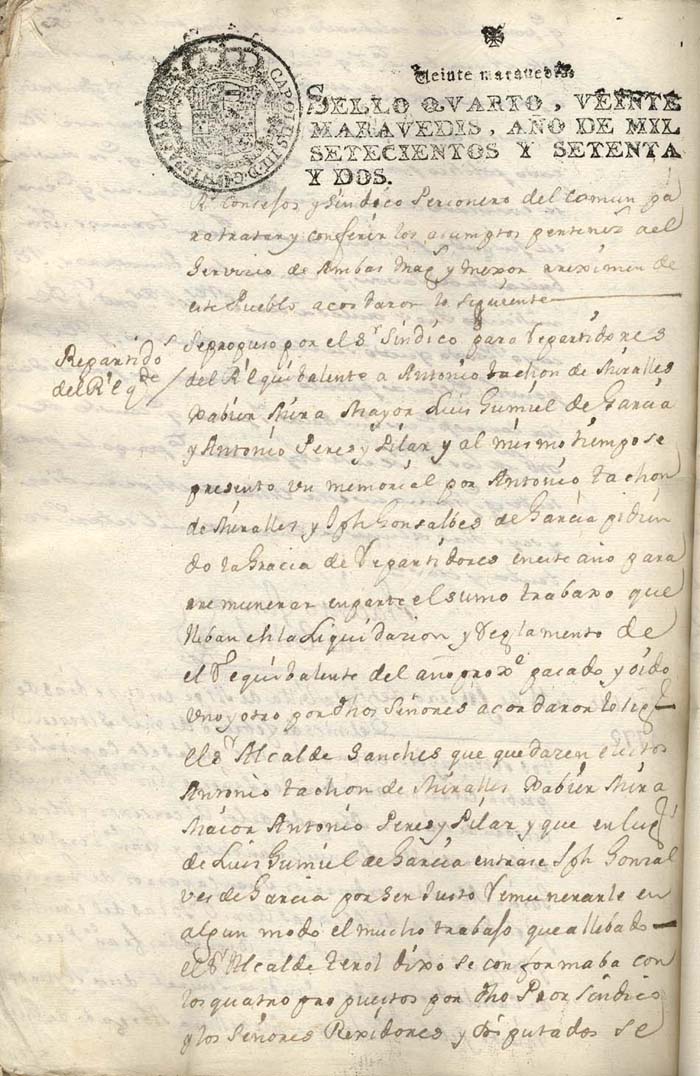 Veinte maravedis
SELLO QVARTO, VEINTE
MARAVEDIS, AÑO DE MIL
SETECIENTOS Y SETENTA
Y DOS.
CAROLUS III D G HISPANIAR
Rl Consejos y Sindico Personero del Comun pa
ra tratar y conferir los asumptos pertenez al
Servizio de Ambas Mags y mexor rreximen de
este Pueblo acordaron lo siguiente
Repartidos
del Rl eqte
Se propuso por el Sr Sindico para Repartidores
del Rl equibalente a Antonio tachon de Miralles
Xabier Mira Mayor Luis Gumiel de Garcia
y Antonio Peres y Pilar y al mismo tiempo se
presento un memorial por Antonio tachon
de Miralles y Jph Gonsalbes de Garcia pidien
do la Gracia de Repartidores en este año para
rremunerar en parte el sumo trabaxo que
lleban en la Liquidazion y Reglamento de
el Requibalente del año proxo pasado y oido
uno y otro por dhos Señores acordaron lo sigte
el Sr Alcalde Sanches que quedazen electos
Antonio tachon de Miralles Xabier Mira
Maior Antonio Peres y Pilar y que en lugr
de Luis Gumiel de Garcia entrase Jph Gonzal
ves de Garcia por ser Justo Remunerarle en
algun modo el mucho trabajo que a llebado
el Sr Alcalde terol dixo se conformaba con
los quatro propuestos por dho Pror Sindico
y los Señores Rexidores y Diputados se